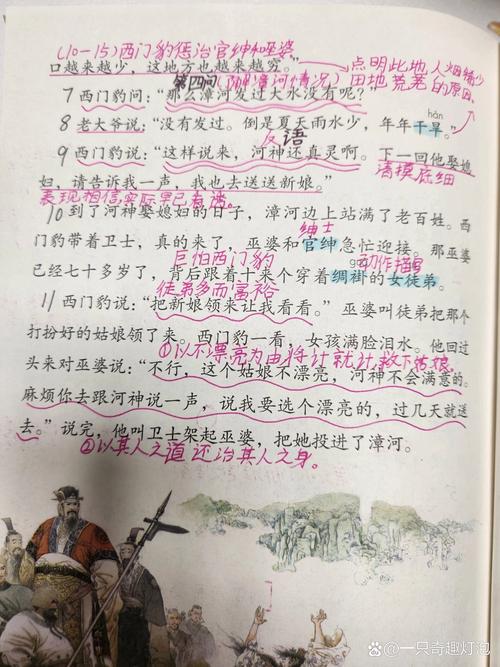 (10-15)西门豹惩治官绅和巫婆
口越来越少，这地方也越来越穷。”
点明此地人烟稀少
田地荒芜的原因。
第四问(漳河情况)
7 西门豹问：“那么漳河发过大水没有呢？”
hàn
8 老大爷说：“没有发过。倒是夏天雨水少，年年干旱。”
反语
9 西门豹说：“这样说来，河神还真灵啊。下一回他娶媳
清摸底细
妇，请告诉我一声，我也去送送新娘。”
表现相信，实际早已看透。
10 到了河神娶媳妇的日子，漳河边上站满了老百姓。西
绅士
门豹带着卫士，真的来了，巫婆和官绅急忙迎接。那巫婆
巨怕西门豹
动作描写
已经七十多岁了，背后跟着十来个穿着绸褂的女徒弟。
徒弟多而富裕
11 西门豹说：“把新娘领来让我看看。”巫婆叫徒弟把那个
打扮好的姑娘领了来。西门豹一看，女孩满脸泪水。他回过
①以不漂亮为由将计就计，救下姑娘
头来对巫婆说：“不行，这个姑娘不漂亮，河神不会满意的。
麻烦你去跟河神说一声，说我要选个漂亮的，过几天就送
去。”说完，他叫卫士架起巫婆，把她投进了漳河。
②以其人之道还治其人之身。
Bai百度 @一只奇趣灯泡